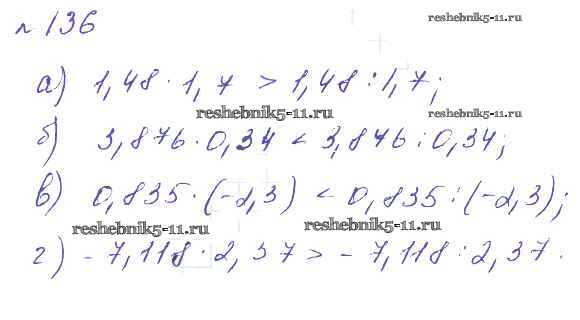 № 136
reshebnik5-11.ru
а) 1,48 · 1,7 > 1,48 : 1,7;
reshebnik5-11.ru
reshebnik5-11.ru
б) 3,876 · 0,34 < 3,876 : 0,34;
в) 0,835 · (-2,3) < 0,835 : (-2,3);
reshebnik5-11.ru
reshebnik5-11.ru
г) - 7,118 · 2,37 > - 7,118 : 2,37.